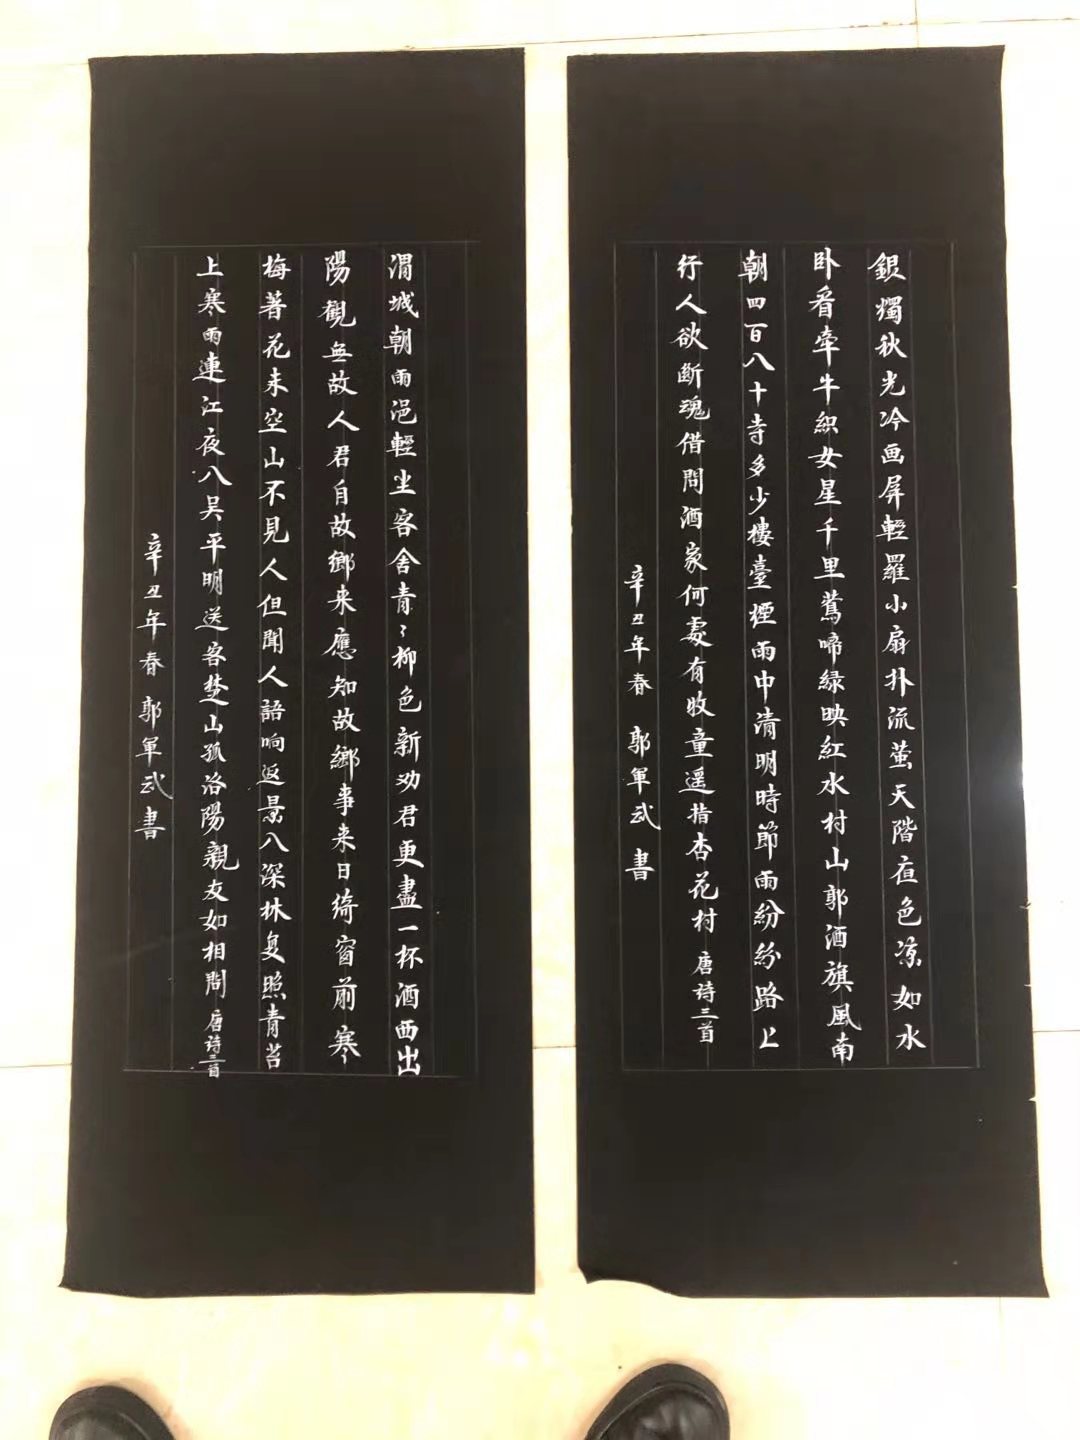 銀燭秋光冷画屏輕羅小扇扑流萤天階夜色凉如水
卧看牵牛織女星千里鶯啼緑映紅水村山郭酒旗風南
朝四百八十寺多少樓臺煙雨中清明時節雨紛紛路上
行人欲断魂借問酒家何處有牧童遥指杏花村 唐诗三首
辛丑年春 郭軍武書
渭城朝雨浥輕尘客舍青〻柳色新劝君更盡一杯酒西出
陽觀無故人君自故鄉来應知故鄉事来日綺窗前寒
梅著花未空山不見人但聞人語响返景八深林复照青苔
上寒雨連江夜八吴平明送客楚山孤洛陽親友如相問 唐诗三首
辛丑年春 郭軍武書